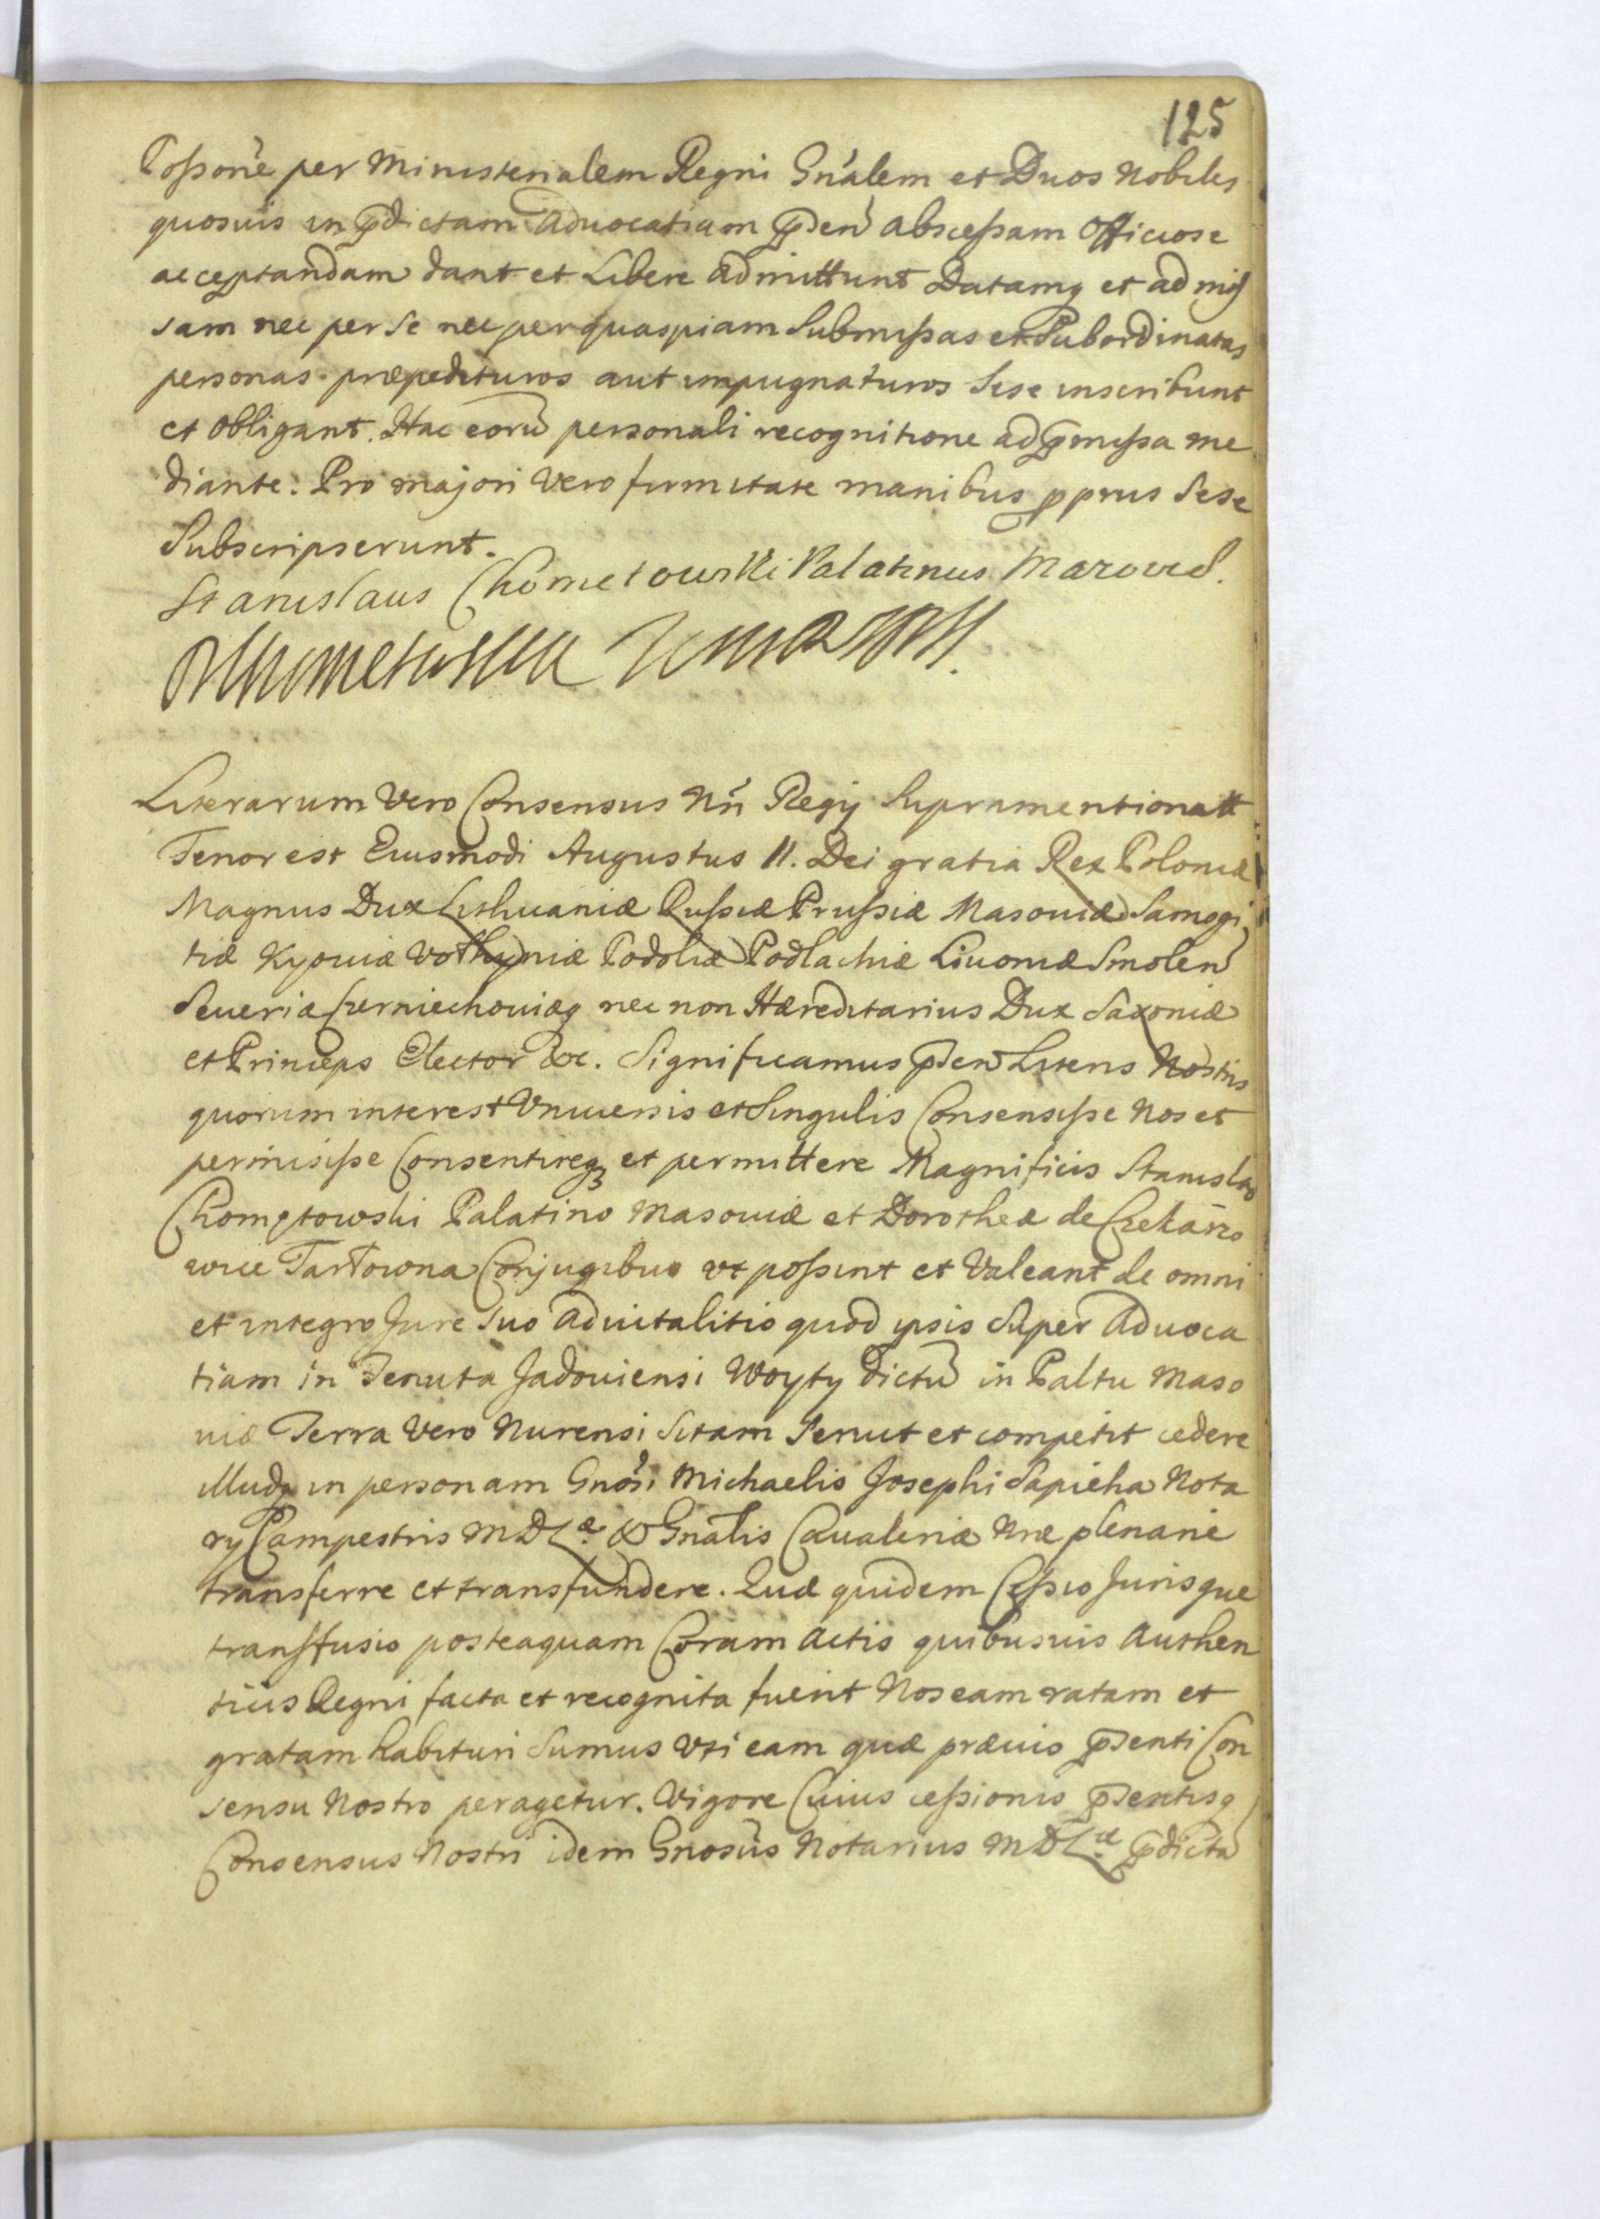 125
Possone per Ministerialem Regni Gnalem et Duos Nobiles
quosvis in pdictam Advocatiam psen abscessam Officiose
acceptandam dant et Libere admittunt Datamq et admis
sam nec per se nec per quaspiam Submissas et Subordinatas
personas præpedituros aut impugnaturos Sese inscribunt
et Obligant. Hac eorũ personali recognitione ad pmissa me
diante. Pro majori Vero firmitate manibus pprus Sese
Subscripserunt.
Stanislaus Chometowski Palatinus Mazovied.
Literarum Vero Consensus Nri Regij Supramentionatt
Tenor est Eiusmodi Augustus II. Dei gratia Rex Poloniæ
Magnus Dux Lithuaniæ Russiæ Prussiæ Masoviæ Samogi
tiæ Kyoviæ Vothyniæ Podoliæ Podlachiæ Livoniæ Smolen
Severiæ Czerniechoviæq nec non Hæreditarius Dux Saxoniæ
et Princeps Elector &c. Significamus psen Literis Nostris
quorum interest Universis et Singulis Consensisse Nos et
permisisse Consentireq et permittere Magnificis Stanislao
Chomętowski Palatino Masoviæ et Dorotheæ de Czekarzo
wice Tarłowna Conjugibus ut possint et Valeant de omni
et integro Jure suo advitalitio quod ipsis Super Advoca
tiam in Tenuta Jadoviensi Woyty dictũ in Paltu Maso
viæ Terra Vero Nurensi Sitam Servit et competit cedere
illudq in personam Gnosi Michaelis Josephi Sapieha Nota
ry Campestris MDLæ & Gnalis Cavaleriæ Nræ plenarie
transferre et transfundere. Quæ quidem Cessio Jurisque
transfusio posteaquam Coram Actis quibusvis Authen
ticis Regni facta et recognita fuerit Nos eam ratam et
gratam habituri Sumus Uti eam quæ prævio psenti Con
sensu Nostro peragetur. Vigore Cuius cessionis psentisq
Consensus Nostri idem Gnosus Notarius MDLæ pdictã